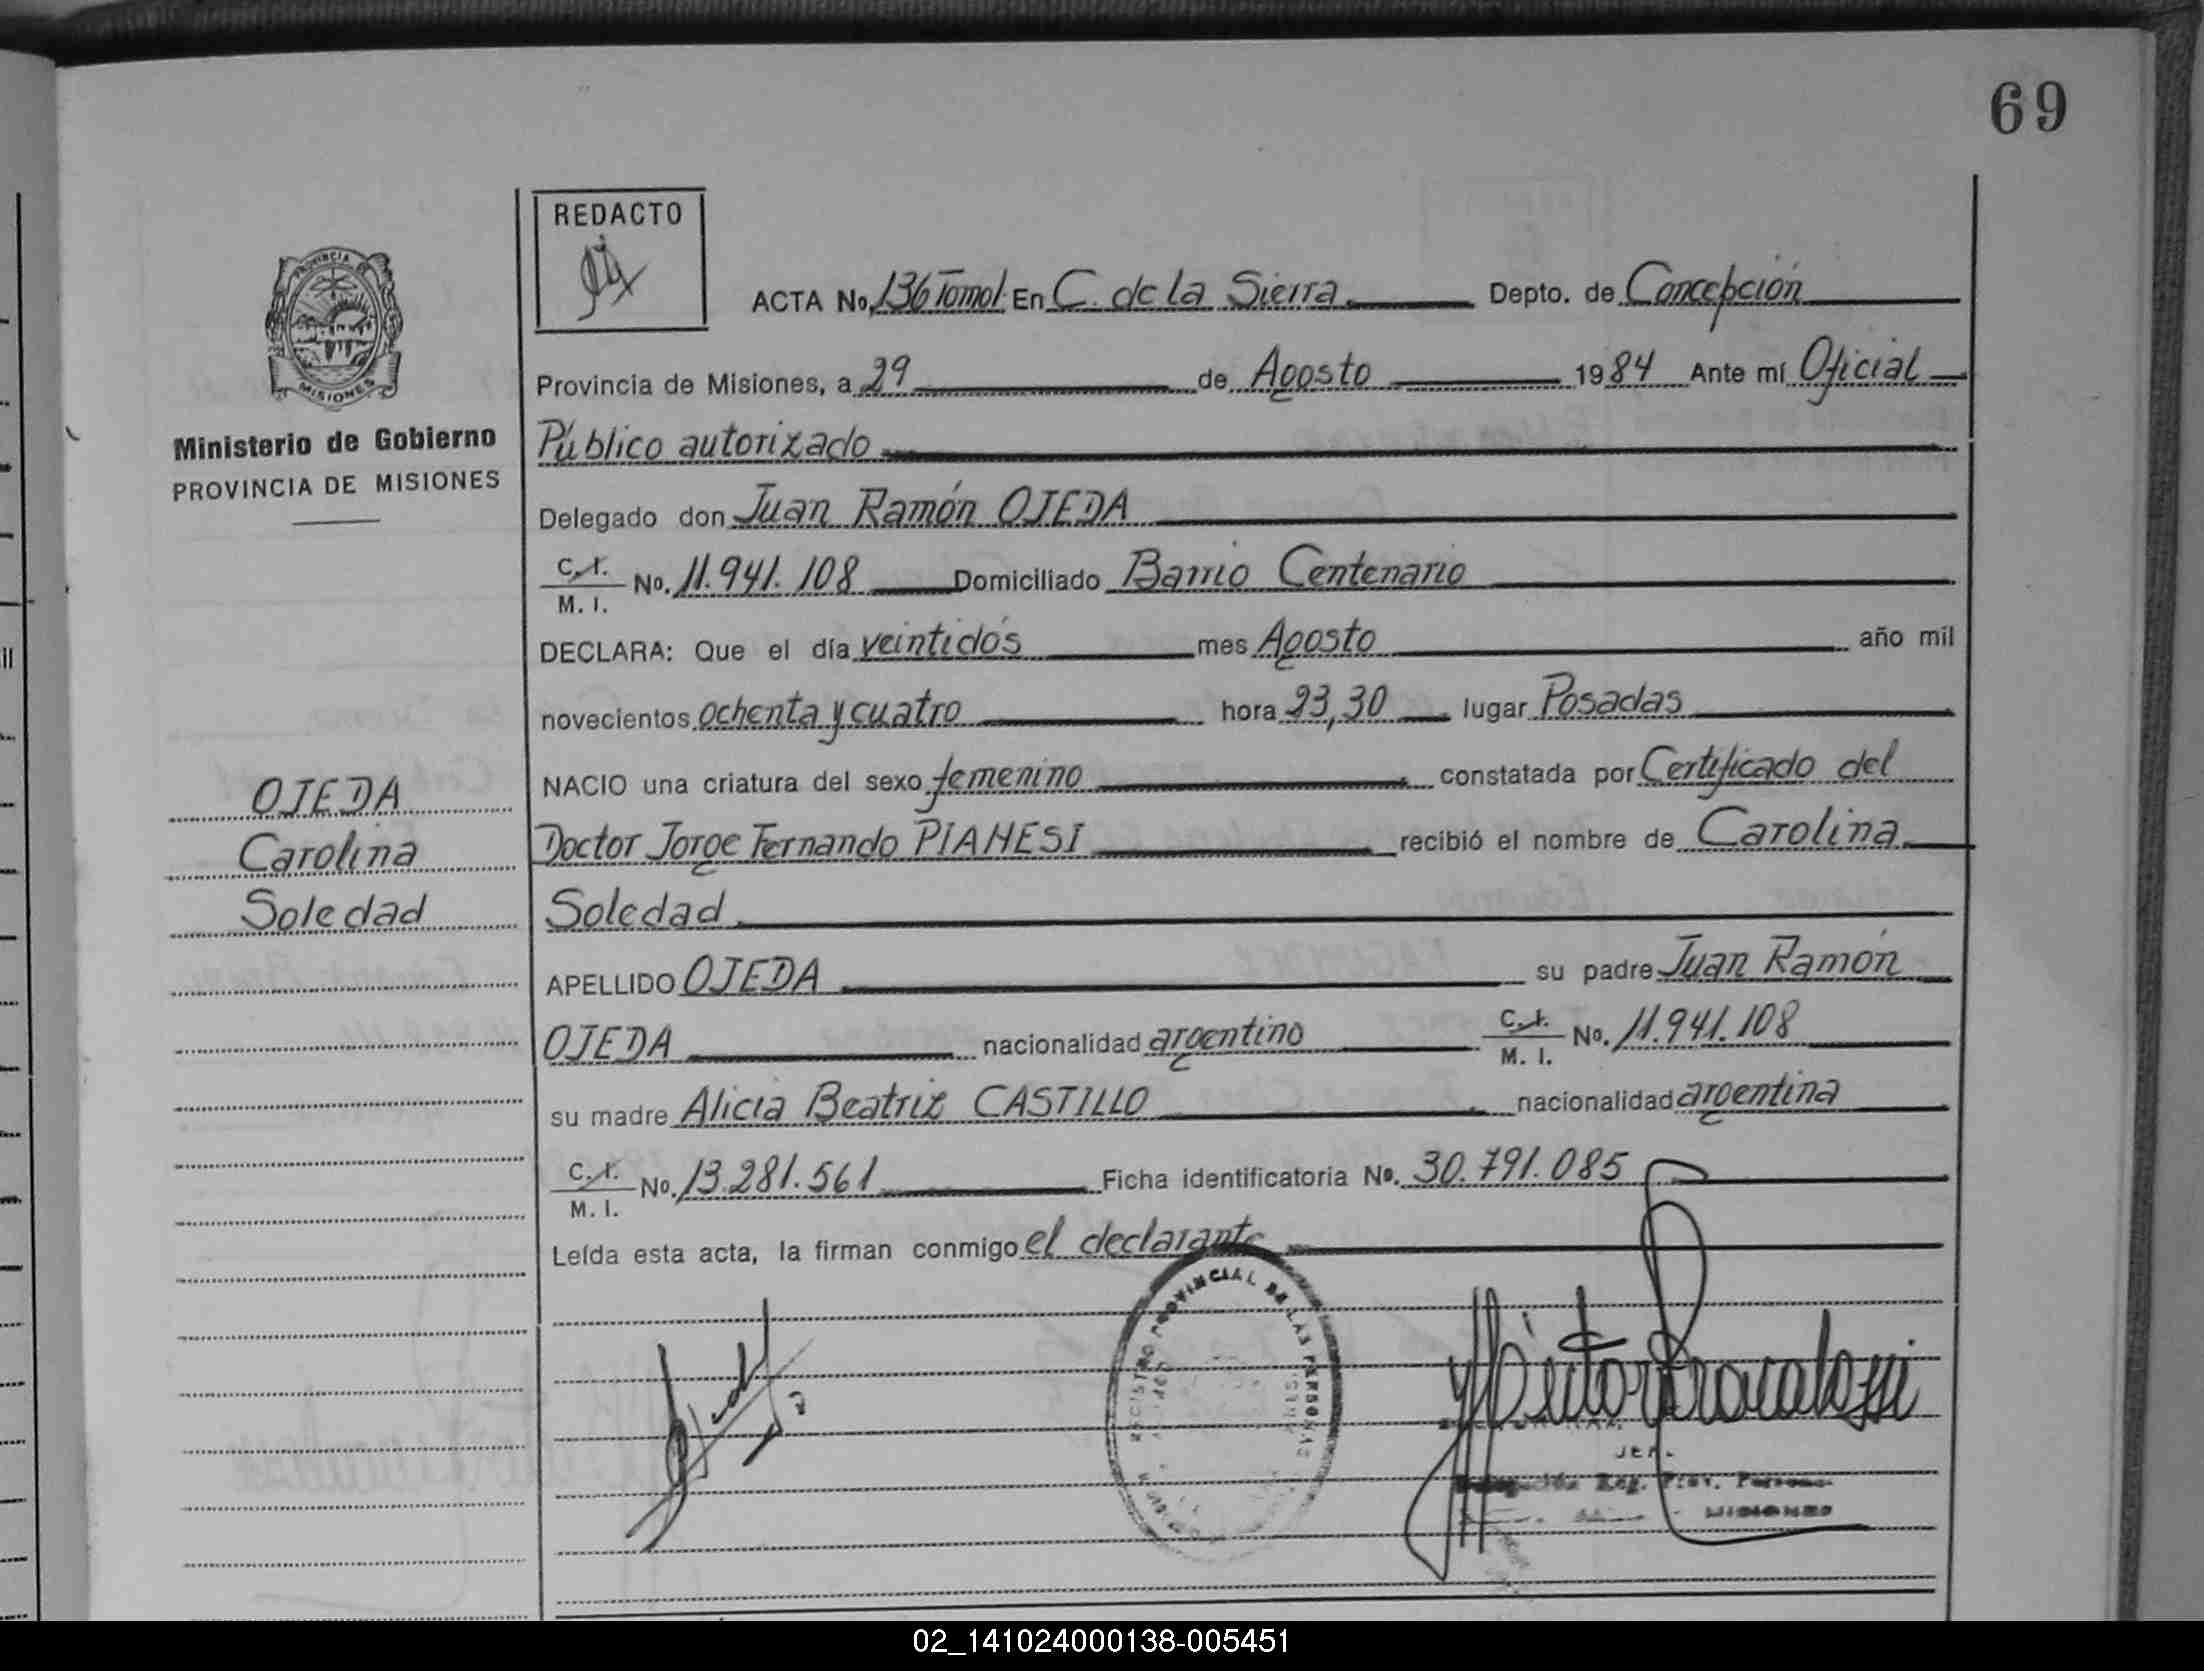 69
REDACTO
ACTA No. 136 Tomo I En C. de la Sierra Depto. de Concepción
Provincia de Misiones, a 29 de Agosto 1984 Ante mí Oficial
Público autorizado
Delegado don Juan Ramón OJEDA
C. I. M. I. No. 11.941.108 Domiciliado Barrio Centenario
DECLARA: Que el día veintidós mes Agosto año mil
novecientos ochenta y cuatro hora 23,30 lugar Posadas
NACIO una criatura del sexo femenino constatada por Certificado del
Doctor Jorge Fernando PIANESI recibió el nombre de Carolina
Soledad
APELLIDO OJEDA su padre Juan Ramón
OJEDA nacionalidad argentino C. I. M. I. No. 11.941.108
su madre Alicia Beatriz CASTILLO nacionalidad argentina
C. I. M. I. No. 13.281.561 Ficha identificatoria No. 30.791.085
Leída esta acta, la firman conmigo el declarante
PROVINCIA DE
MISIONES
Ministerio de Gobierno
PROVINCIA DE MISIONES
OJEDA
Carolina
Soledad
REGISTRO PROVINCIAL DE LAS PERSONAS
Reg. Prov. Persona
MISIONES
02_141024000138-005451